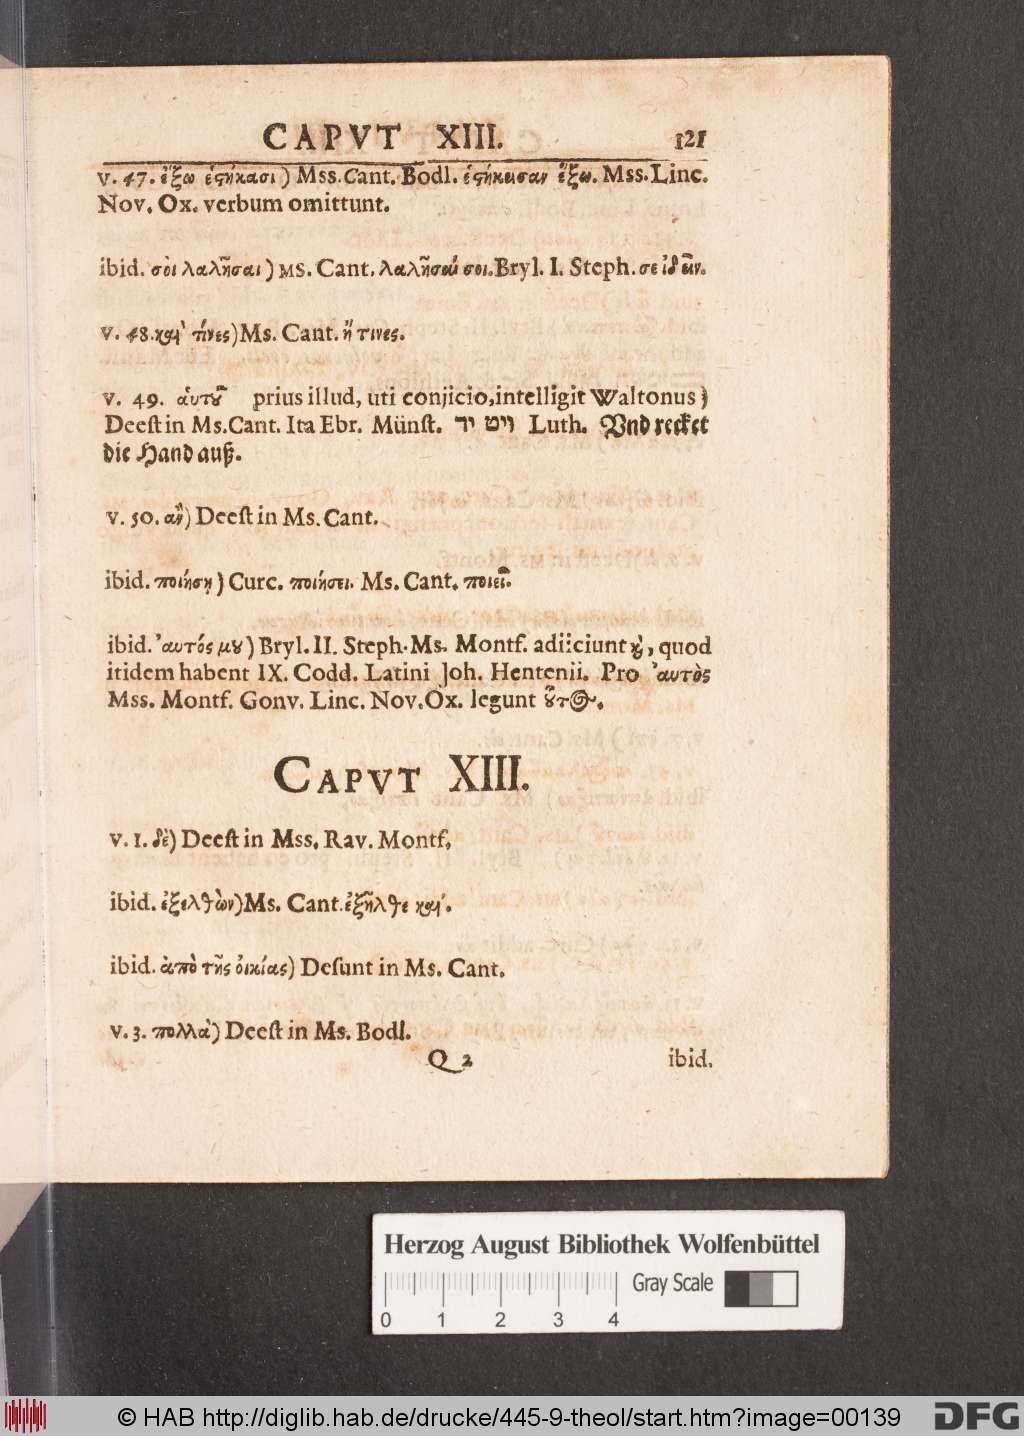 CAPVT XIII. 121
v. 47. ἔξω ἑϛήκασι) Mss. Cant. Bodl. ἑϛήκεισαν ἔξω. Mss. Linc.
Nov. Ox. verbum omittunt.
ibid. σὸι λαλῆσαι) MS. Cant. λαλῆσαί σοι. Bryl. I. Steph. σε ἰδεῖν.
v. 48. καὶ τίνες) Ms. Cant. ἤ τινες.
v. 49. ἁυτȣ͂ prius illud, uti conjicio, intelligit Waltonus)
Deeſt in Ms. Cant. Ita Ebr. Münſt. ויט יד Luth. Vnd recket
die Hand auß.
v. 50. ἂν) Deeſt in Ms. Cant.
ibid. ποιήσῃ) Curc. ποιήσει. Ms. Cant. ποιεῖ.
ibid. ἀυτός μȣ) Bryl. II. Steph. Ms. Montf. adjiciunt ϗ, quod
itidem habent IX. Codd. Latini Joh. Hentenii. Pro ἀυτὸς
Mss. Montf. Gonv. Linc. Nov. Ox. legunt ȣ͗͂τος.
CAPVT XIII.
v. 1. δὲ) Deeſt in Mss. Rav. Montf.
ibid. ἐξελθὼν) Ms. Cant. ἐξῆλθε καί.
ibid. ἀπὸ τῆς ὀικίας) Deſunt in Ms. Cant.
v. 3. πολλὰ) Deeſt in Ms. Bodl.
Q 2 ibid.
Herzog August Bibliothek Wolfenbüttel
Gray Scale
0 1 2 3 4
© HAB http://diglib.hab.de/drucke/445-9-theol/start.htm?image=00139 DFG